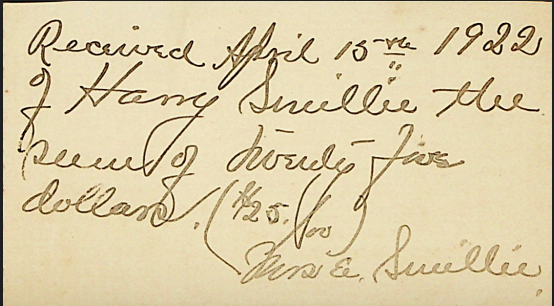 Received April 15th 1922
of Harry Smillie the
sum of twenty five
dollars. ($25.00)
Mrs E. Smillie.